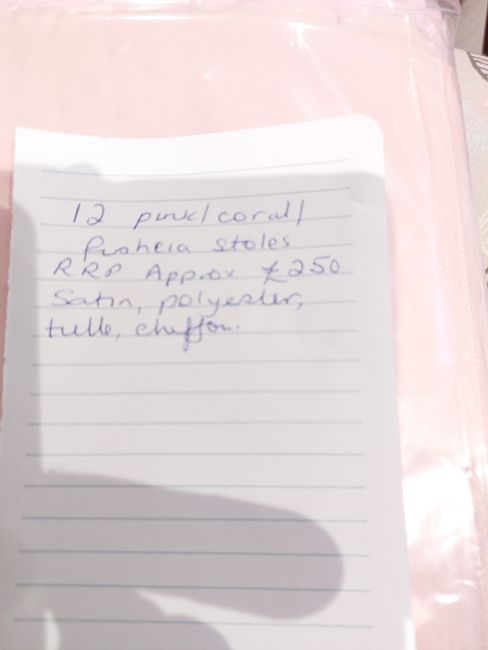 12 pink/coral/
Fusheia stoles
RRP Approx £250
Satin, polyester,
tulle, cheffon.